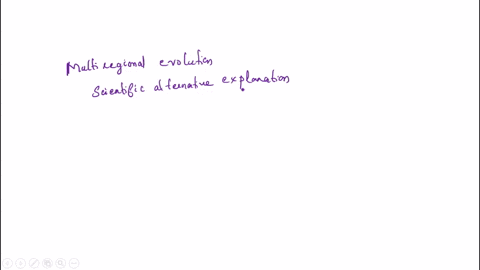 Multiregional evolution
Scientific alternative explanation